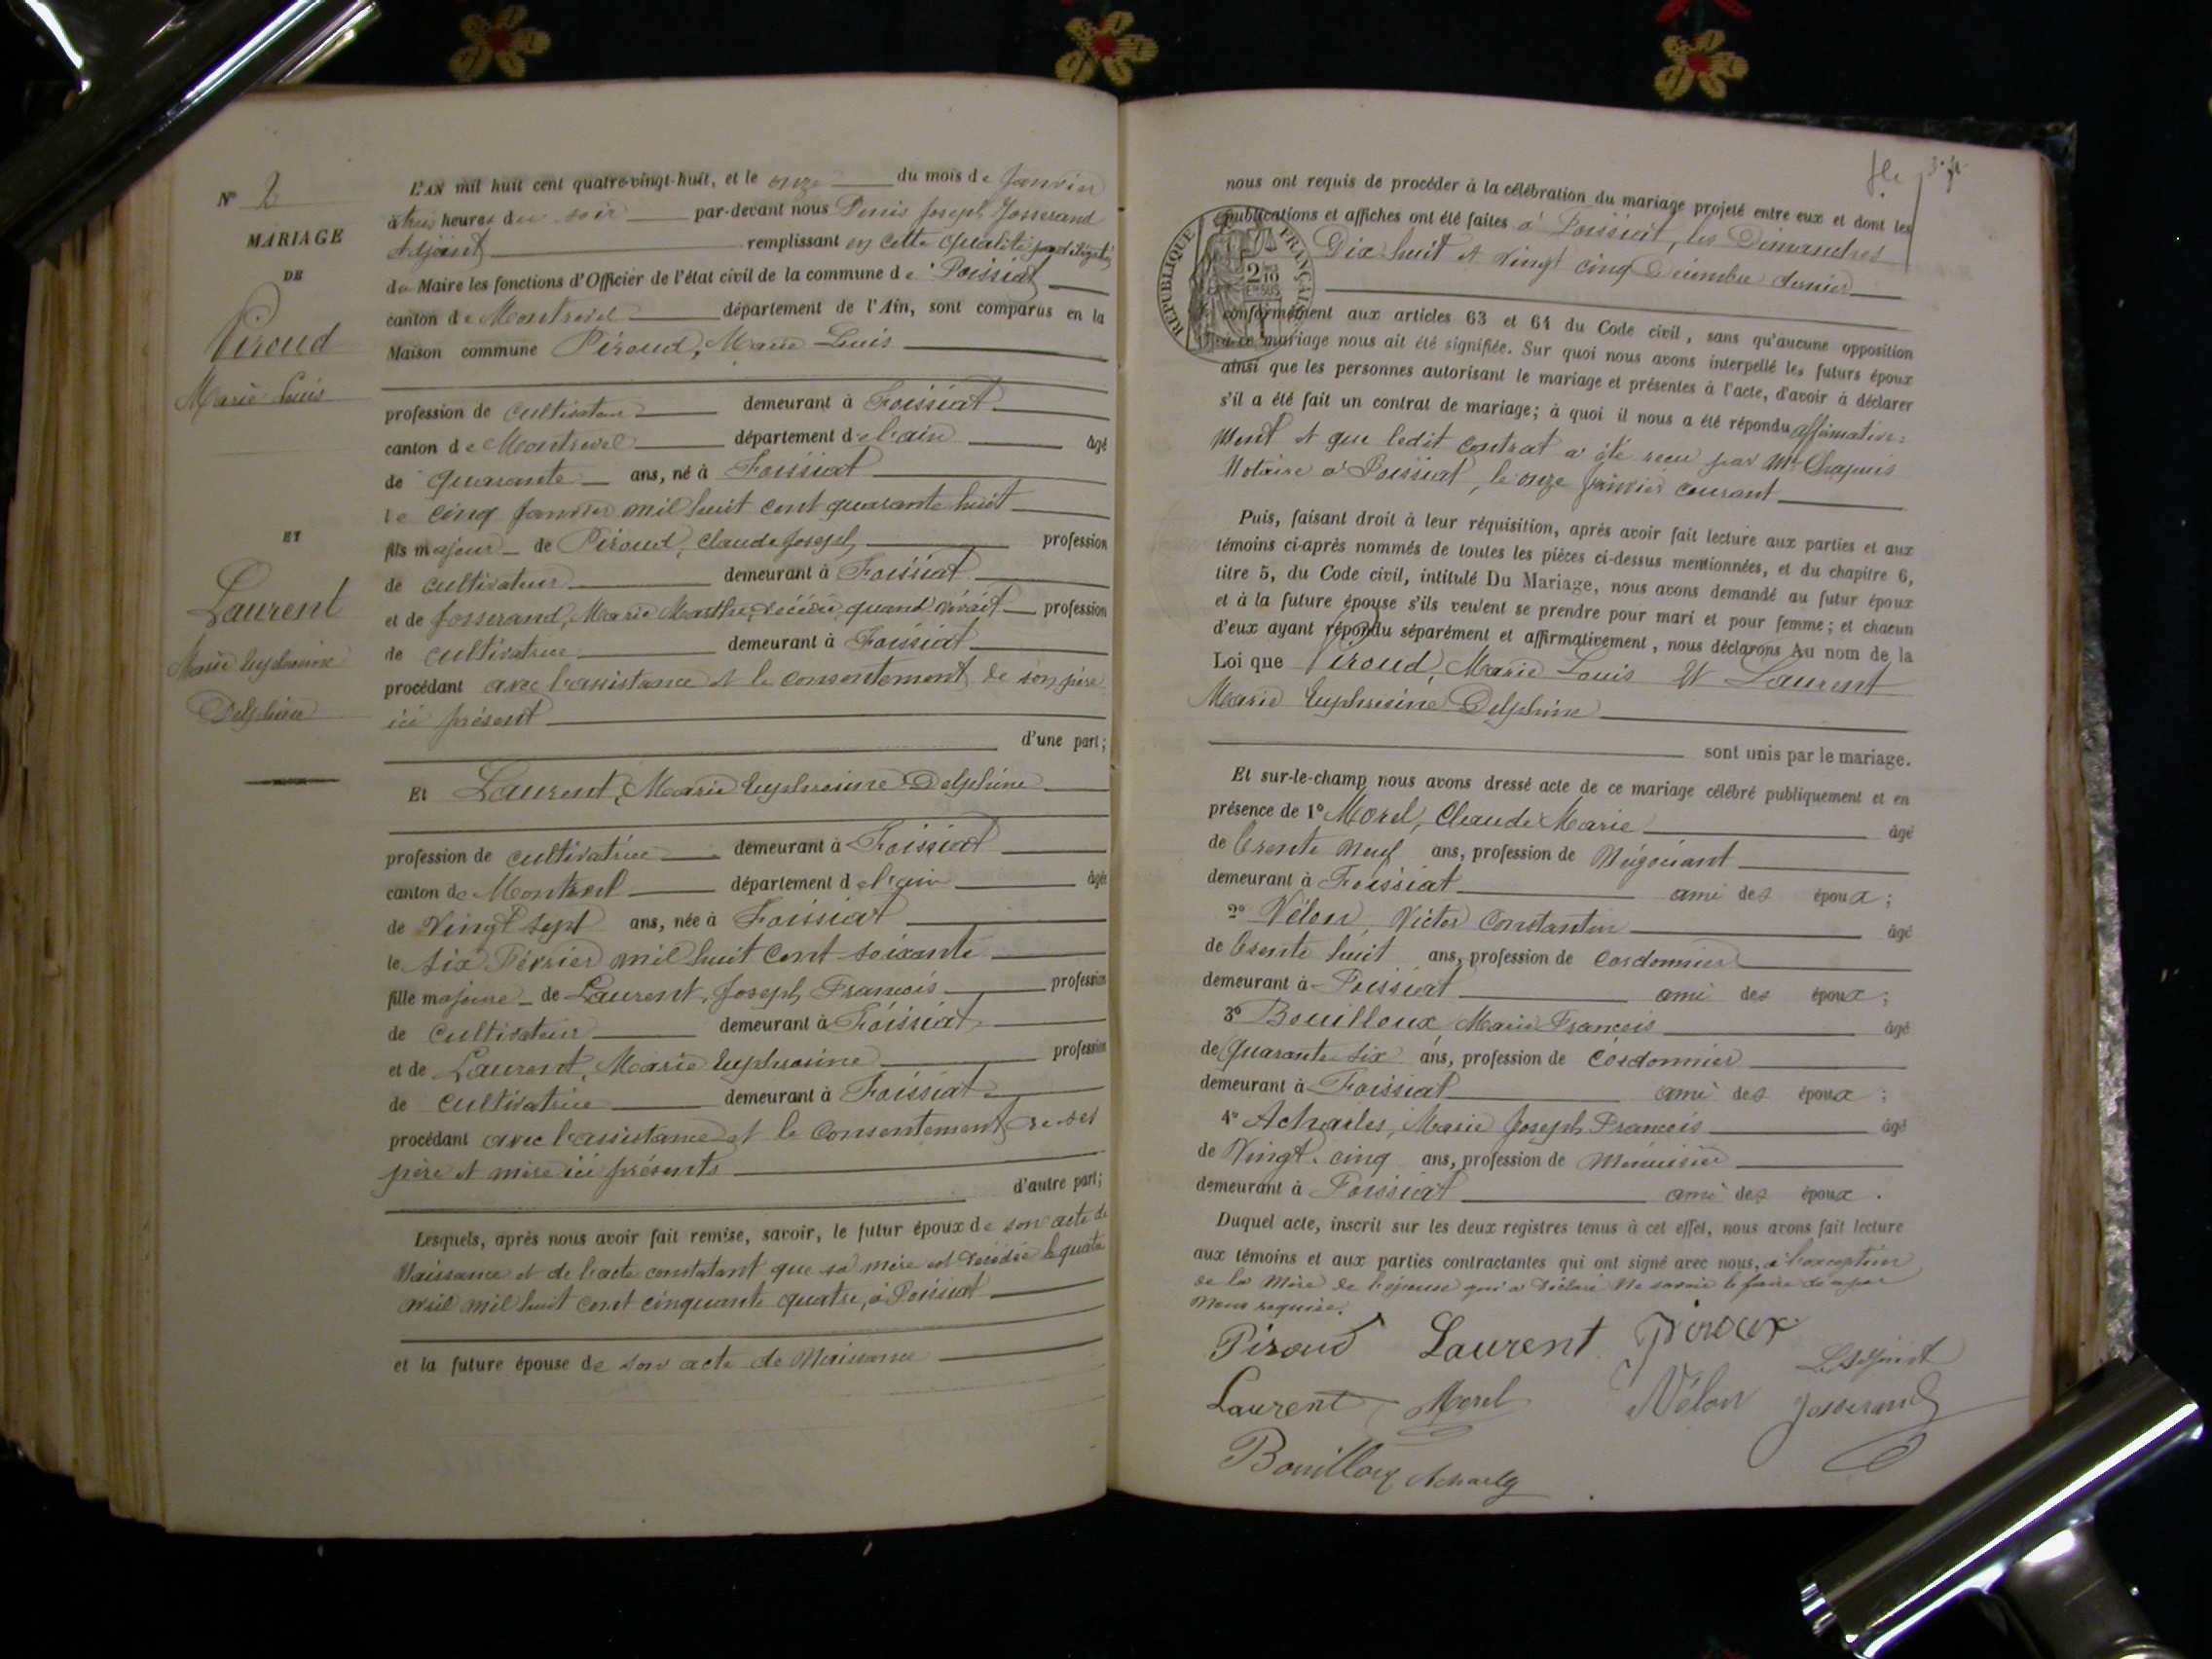 N° 2
MARIAGE
DE
Piroud
Marie Louis
ET
Laurent
Marie Euphrosine
Delphine
L'AN mil huit cent quatre-vingt-huit, et le onze du mois de Janvier
à trois heures du soir par-devant nous Denis Joseph Josserand
Adjoint remplissant en cette qualité par délégation
du Maire les fonctions d'Officier de l'état civil de la commune de Foissiat
canton de Montrevel département de l'Ain, sont comparus en la
Maison commune Piroud, Marie Louis
profession de cultivateur demeurant à Foissiat
canton de Montrevel département de l'ain âgé
de quarante ans, né à Foissiat
le cinq Janvier mil huit cent quarante huit
fils majeur de Piroud, Claude Joseph profession
de cultivateur demeurant à Foissiat
et de Josserand, Marie Marthe, décédée, quand vivait profession
de cultivatrice demeurant à Foissiat
procédant avec l'assistance et le consentement de son père
ici présent
d'une part;
Et Laurent, Marie Euphrosine Delphine
profession de cultivatrice demeurant à Foissiat
canton de Montrevel département de l'ain âgée
de Vingt sept ans, née à Foissiat
le six Février mil huit cent soixante
fille majeure de Laurent, Joseph François profession
de cultivateur demeurant à Foissiat
et de Laurent, Marie Euphrosine profession
de cultivatrice demeurant à Foissiat
procédant avec l'assistance et le Consentement de ses
père et mère ici présents
d'autre part;
Lesquels, après nous avoir fait remise, savoir, le futur époux de son acte de
Naissance et de l'acte constatant que sa mère est décédée le quatre
avril mil huit cent cinquante quatre, à Foissiat
et la future épouse de son acte de Naissance
nous ont requis de procéder à la célébration du mariage projeté entre eux et dont les
publications et affiches ont été faites à Foissiat, les Dimanches
Dix huit et Vingt cinq Décembre dernier
RÉPUBLIQUE FRANÇAISE
conformément aux articles 63 et 64 du Code civil, sans qu'aucune opposition
à ce mariage nous ait été signifiée. Sur quoi nous avons interpellé les futurs époux
ainsi que les personnes autorisant le mariage et présentes à l'acte, d'avoir à déclarer
s'il a été fait un contrat de mariage; à quoi il nous a été répondu affirmative=
ment et que ledit contrat a été reçu par Mr Chapuis
Notaire à Foissiat, le onze Janvier courant
Puis, faisant droit à leur réquisition, après avoir fait lecture aux parties et aux
témoins ci-après nommés de toutes les pièces ci-dessus mentionnées, et du chapitre 6,
titre 5, du Code civil, intitulé Du Mariage, nous avons demandé au futur époux
et à la future épouse s'ils veulent se prendre pour mari et pour femme; et chacun
d'eux ayant répondu séparément et affirmativement, nous déclarons Au nom de la
Loi que Piroud, Marie Louis Et Laurent
Marie Euphrosine Delphine
sont unis par le mariage.
Et sur-le-champ nous avons dressé acte de ce mariage célébré publiquement et en
présence de 1° Morel, Claude Marie âgé
de trente neuf ans, profession de Négociant
demeurant à Foissiat ami des époux;
2° Vélon, Victor Constantin âgé
de trente huit ans, profession de Cordonnier
demeurant à Foissiat ami des époux;
3° Bouilloux, Marie François âgé
de quarante six ans, profession de Cordonnier
demeurant à Foissiat ami des époux;
4° Acharles, Marie Joseph François âgé
de Vingt cinq ans, profession de Menuisier
demeurant à Foissiat ami des époux.
Duquel acte, inscrit sur les deux registres tenus à cet effet, nous avons fait lecture
aux témoins et aux parties contractantes qui ont signé avec nous, à l'exception
de la Mère de l'épouse qui a déclaré ne savoir le faire de ce par
Nous requise.
Piroud Laurent Piroux
L'adjoint
Laurent Morel Vélon Josserand
Bouilloux Acharles